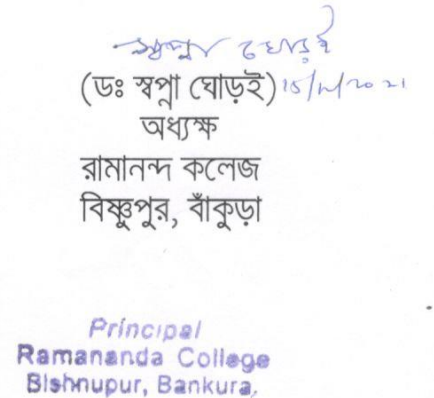 স্বপ্না ঘোড়ই
(ডঃ স্বপ্না ঘোড়ই) 15/11/2021
অধ্যক্ষ
রামানন্দ কলেজ
বিষ্ণুপুর, বাঁকুড়া
Principal
Ramananda College
Bishnupur, Bankura,